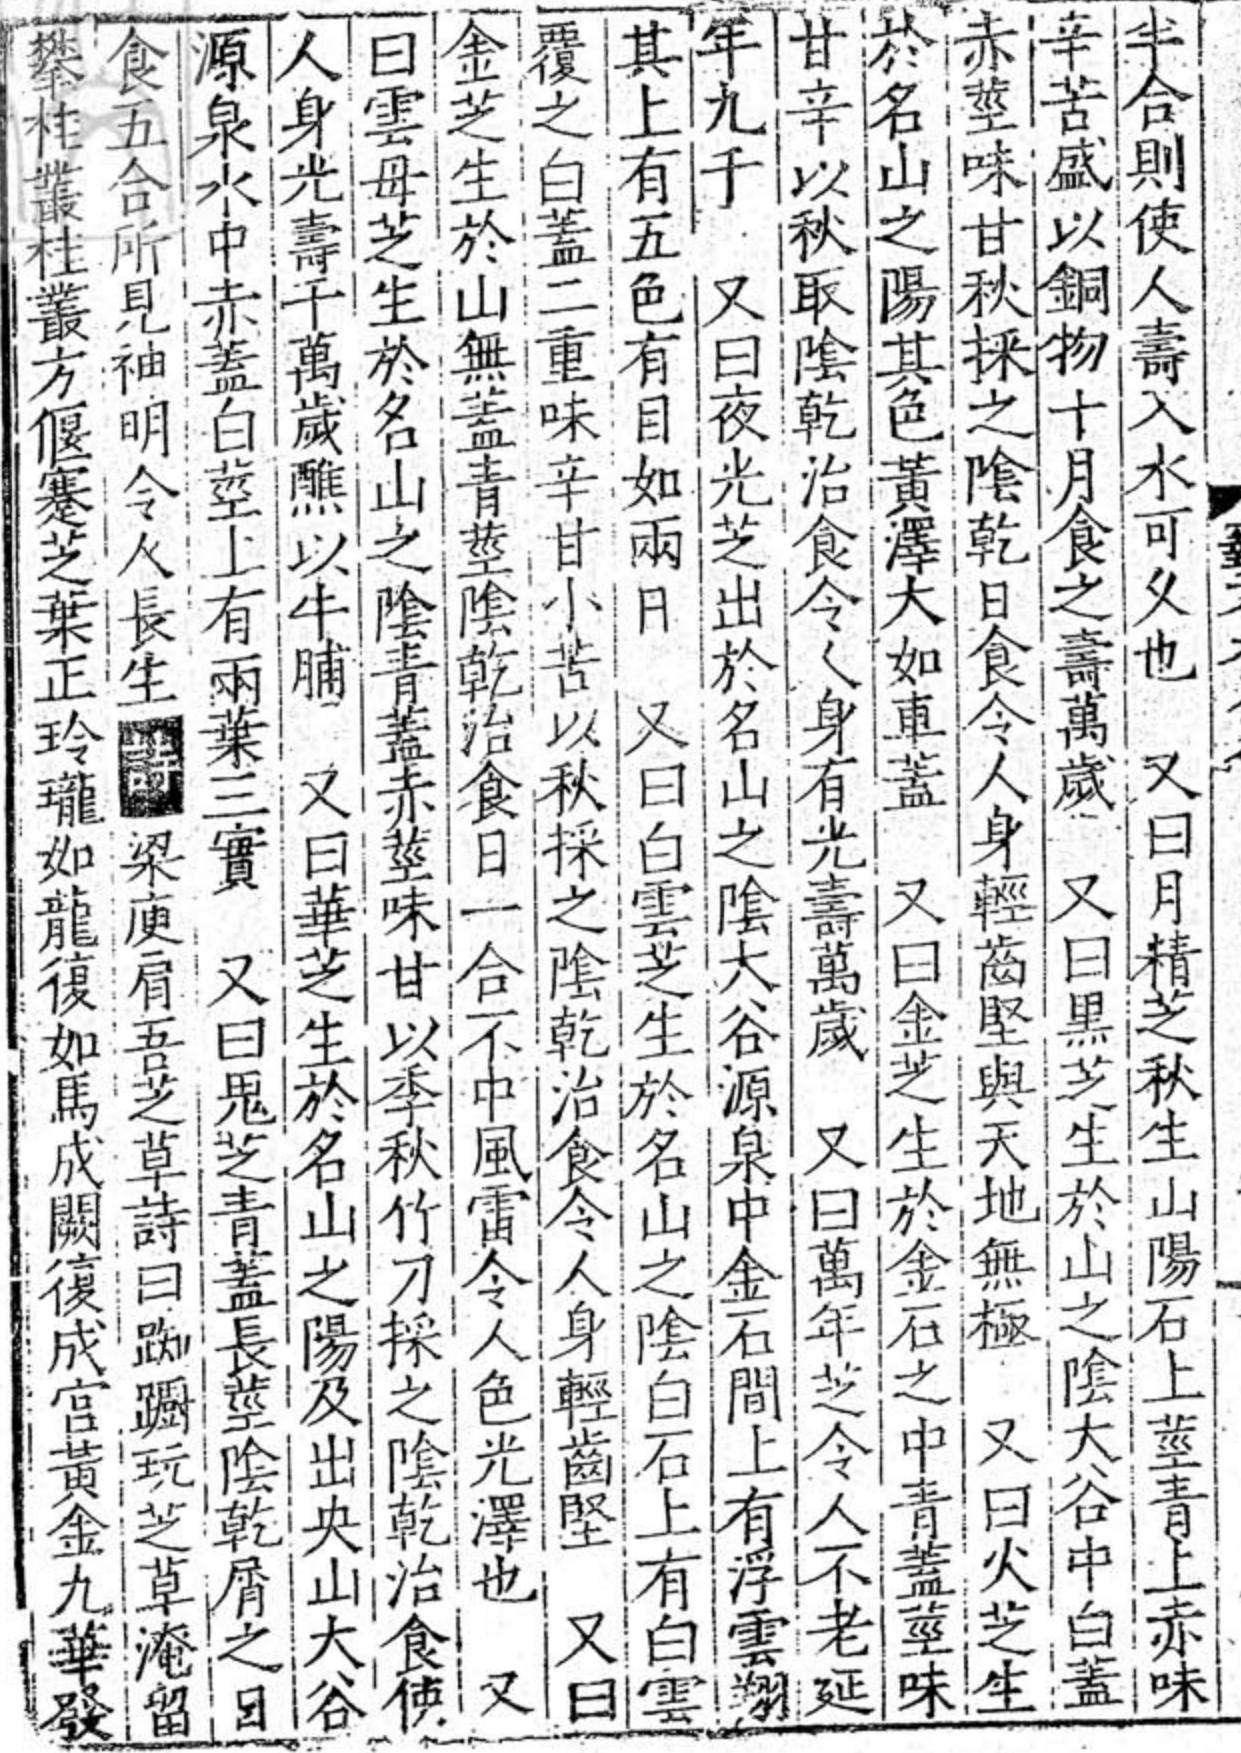 半合則使人壽入水可久也　又曰月精芝秋生山陽石上莖青上赤味
辛苦盛以銅物十月食之壽萬歲　又曰黑芝生於山之陰大谷中白蓋
赤莖味甘秋採之陰乾日食令人身輕齒堅與天地無極　又曰火芝生
於名山之陽其色黃澤大如車蓋　又曰金芝生於金石之中青蓋莖味
甘辛以秋取陰乾治食令人身有光壽萬歲　又曰萬年芝令人不老延
年九千　又曰夜光芝出於名山之陰大谷源泉中金石間上有浮雲翔
其上有五色有目如兩日　又曰白雲芝生於名山之陰白石上有白雲
覆之白蓋二重味辛甘小苦以秋採之陰乾治食令人身輕齒堅　又曰
金芝生於山無蓋青莖陰乾治食日一合不中風雷令人色光澤也　又
曰雲母芝生於名山之陰青蓋赤莖味甘以季秋竹刀採之陰乾治食使
人身光壽千萬歲醮以牛脯　又曰華芝生於名山之陽及出央山大谷
源泉水中赤蓋白莖上有兩葉三實　又曰鬼芝青蓋長莖陰乾屑之日
食五合所見神明令人長生　詩　梁庾肩吾芝草詩曰踟躕玩芝草淹留
攀桂叢桂叢方偃蹇芝葉正玲瓏如龍復如馬成闕復成宮黃金九華發